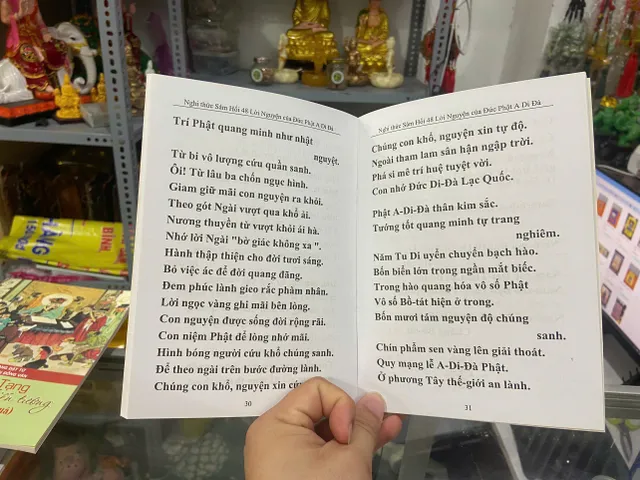 Nghi thức Sám Hối 48 Lời Nguyện của Đức Phật A Di Đà
Trí Phật quang minh như nhật
nguyệt.
Từ bi vô lượng cứu quần sanh.
Ôi! Từ lâu ba chốn ngục hình.
Giam giữ mãi con nguyện ra khỏi.
Theo gót Ngài vượt qua khổ ải.
Nương thuyền từ vượt khỏi ái hà.
Nhớ lời Ngài "bờ giác không xa ".
Hành thập thiện cho đời tươi sáng.
Bỏ việc ác để đời quang đãng.
Đem phúc lành gieo rắc phàm nhân.
Lời ngọc vàng ghi mãi bên lòng.
Con nguyện được sống đời rộng rãi.
Con niệm Phật để lòng nhớ mãi.
Hình bóng người cứu khổ chúng sanh.
Để theo ngài trên bước đường lành.
Chúng con khổ, nguyện xin cứu
30
Nghi thức Sám Hối 48 Lời Nguyện của Đức Phật A Di Đà
Chúng con khổ, nguyện xin tự độ.
Ngoài tham lam sân hận ngập trời.
Phá si mê trí huệ tuyệt vời.
Con nhớ Đức Di-Đà Lạc Quốc.
Phật A-Di-Đà thân kim sắc.
Tướng tốt quang minh tự trang
nghiêm.
Năm Tu Di uyển chuyển bạch hào.
Bốn biển lớn trong ngần mắt biếc.
Trong hào quang hóa vô số Phật
Vô số Bồ-tát hiện ở trong.
Bốn mươi tám nguyện độ chúng
sanh.
Chín phẩm sen vàng lên giải thoát.
Quy mạng lễ A-Di-Đà Phật.
Ở phương Tây thế-giới an lành.
31
Tạng